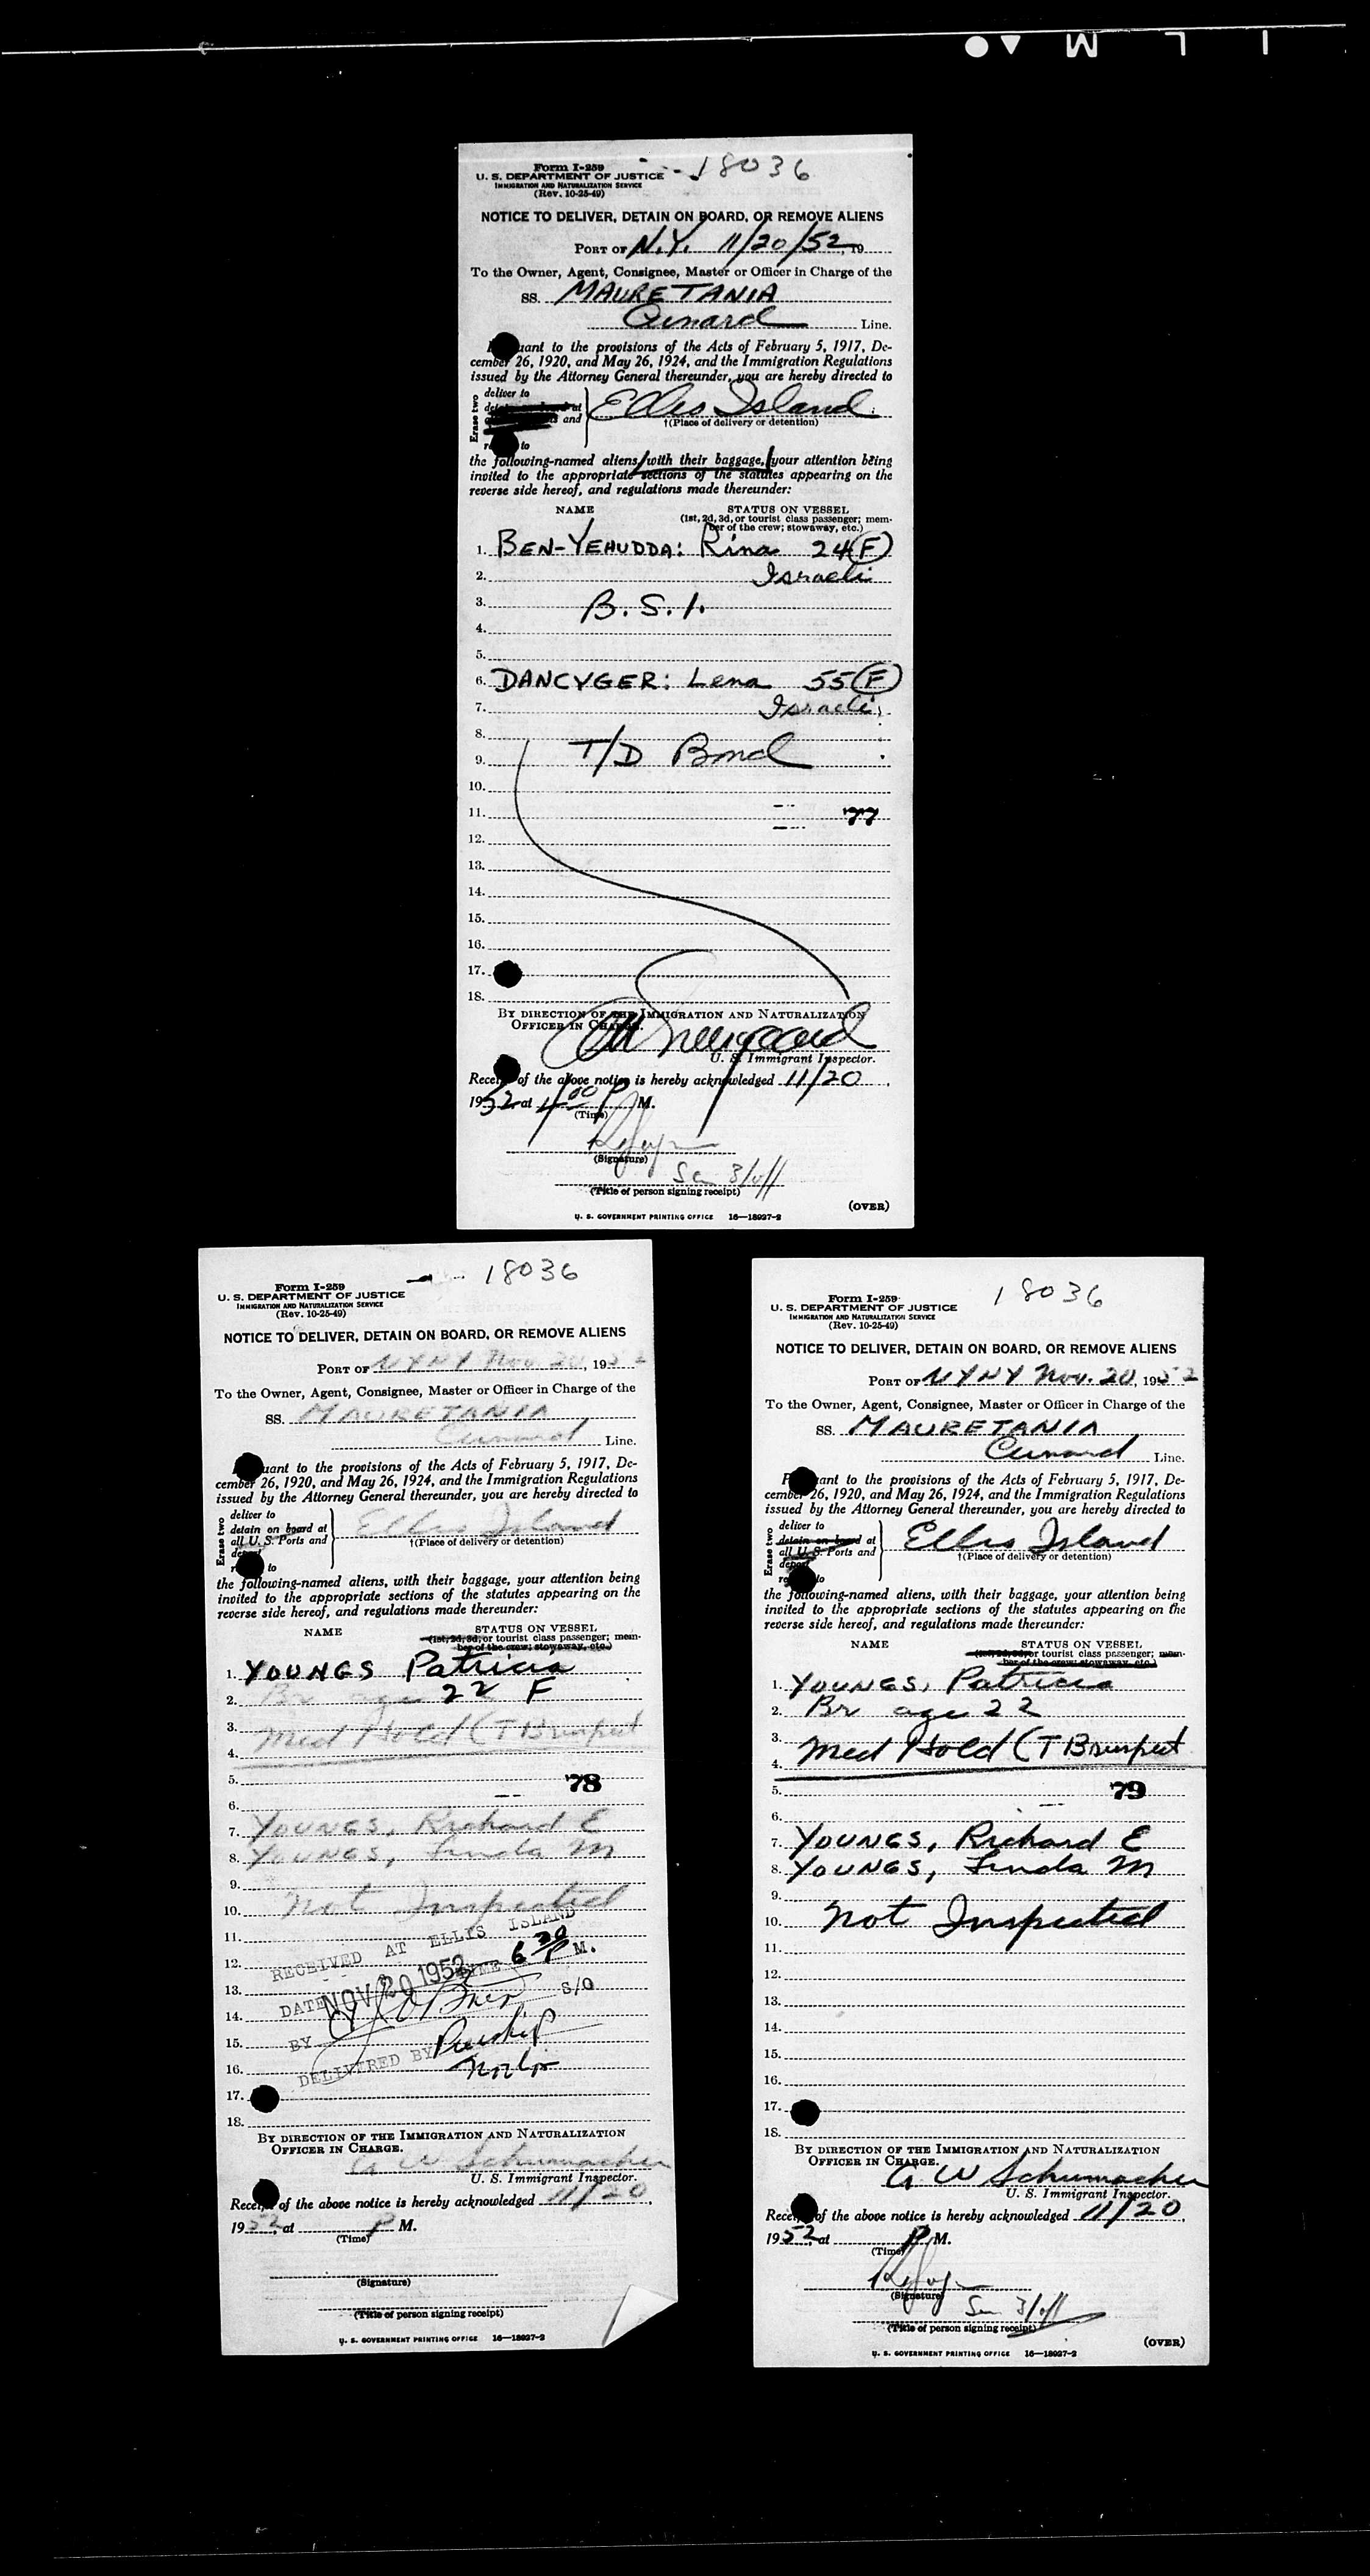 I L M
Form I-259
18036
U. S. DEPARTMENT OF JUSTICE
IMMIGRATION AND NATURALIZATION SERVICE
(Rev. 10-25-49)
NOTICE TO DELIVER, DETAIN ON BOARD, OR REMOVE ALIENS
PORT OF N.Y. 11/20/52, 19
To the Owner, Agent, Consignee, Master or Officer in Charge of the
SS. MAURETANIA
Cunard Line.
uant to the provisions of the Acts of February 5, 1917, De-
cember 26, 1920, and May 26, 1924, and the Immigration Regulations
issued by the Attorney General thereunder, you are hereby directed to
Erase two
deliver to
at
and
to
Ellis Island
†(Place of delivery or detention)
the following-named aliens, with their baggage, your attention being
invited to the appropriate sections of the statutes appearing on the
reverse side hereof, and regulations made thereunder:
NAME STATUS ON VESSEL
(1st, 2d, 3d, or tourist class passenger; mem-
ber of the crew; stowaway, etc.)
1. BEN-YEHUDDA: Rina 24 F
2. Israeli
3. B.S.I.
4.
5.
6. DANCYGER: Lena 55 F
7. Israeli
8.
9. T/D Bond
10.
11. 77
12.
13.
14.
15.
16.
17.
18.
BY DIRECTION OF THE IMMIGRATION AND NATURALIZATION
OFFICER IN CHARGE.
U. S. Immigrant Inspector.
Receipt of the above notice is hereby acknowledged 11/20,
1952 at 4:00 P M.
(Time)
(Signature)
(Title of person signing receipt)
(OVER)
U. S. GOVERNMENT PRINTING OFFICE 16—18927-2
Form I-259
18036
U. S. DEPARTMENT OF JUSTICE
IMMIGRATION AND NATURALIZATION SERVICE
(Rev. 10-25-49)
NOTICE TO DELIVER, DETAIN ON BOARD, OR REMOVE ALIENS
PORT OF NYNY Nov. 20, 1952
To the Owner, Agent, Consignee, Master or Officer in Charge of the
SS. MAURETANIA
Cunard Line.
uant to the provisions of the Acts of February 5, 1917, De-
cember 26, 1920, and May 26, 1924, and the Immigration Regulations
issued by the Attorney General thereunder, you are hereby directed to
Erase two
deliver to
detain on board at
all U. S. Ports and
to
Ellis Island
†(Place of delivery or detention)
the following-named aliens, with their baggage, your attention being
invited to the appropriate sections of the statutes appearing on the
reverse side hereof, and regulations made thereunder:
NAME STATUS ON VESSEL
(1st, 2d, 3d, or tourist class passenger; mem-
ber of the crew; stowaway, etc.)
1. YOUNGS Patricia
2. Br age 22 F
3. Med Hold (TB
4.
5. 78
6.
7. YOUNGS, Richard E
8. YOUNGS, Linda M
9.
10. Not Inspected
11.
12.
13.
14.
15.
16.
17.
18.
RECEIVED AT ELLIS ISLAND
DATE NOV 20 1952 TIME 6 30 P M.
BY S/O
DELIVERED BY
BY DIRECTION OF THE IMMIGRATION AND NATURALIZATION
OFFICER IN CHARGE.
G W Schumacher
U. S. Immigrant Inspector.
Receipt of the above notice is hereby acknowledged 11/20,
1952, at P M.
(Time)
(Signature)
(Title of person signing receipt)
U. S. GOVERNMENT PRINTING OFFICE 16—18927-2
Form I-259
18036
U. S. DEPARTMENT OF JUSTICE
IMMIGRATION AND NATURALIZATION SERVICE
(Rev. 10-25-49)
NOTICE TO DELIVER, DETAIN ON BOARD, OR REMOVE ALIENS
PORT OF NYNY Nov. 20, 1952
To the Owner, Agent, Consignee, Master or Officer in Charge of the
SS. MAURETANIA
Cunard Line.
P ant to the provisions of the Acts of February 5, 1917, De-
cember 26, 1920, and May 26, 1924, and the Immigration Regulations
issued by the Attorney General thereunder, you are hereby directed to
Erase two
deliver to
detain on board at
all U. S. Ports and
deport
to
Ellis Island
†(Place of delivery or detention)
the following-named aliens, with their baggage, your attention being
invited to the appropriate sections of the statutes appearing on the
reverse side hereof, and regulations made thereunder:
NAME STATUS ON VESSEL
(1st, 2d, 3d, or tourist class passenger; mem-
ber of the crew; stowaway, etc.)
1. YOUNGS, Patricia
2. Br age 22
3. Med Hold (TB
4.
5. 79
6.
7. YOUNGS, Richard E
8. YOUNGS, Linda M
9.
10. Not Inspected
11.
12.
13.
14.
15.
16.
17.
18.
BY DIRECTION OF THE IMMIGRATION AND NATURALIZATION
OFFICER IN CHARGE.
G W Schumacher
U. S. Immigrant Inspector.
Receipt of the above notice is hereby acknowledged 11/20,
1952, at P M.
(Time)
(Signature)
(Title of person signing receipt)
(OVER)
U. S. GOVERNMENT PRINTING OFFICE 16—18927-2